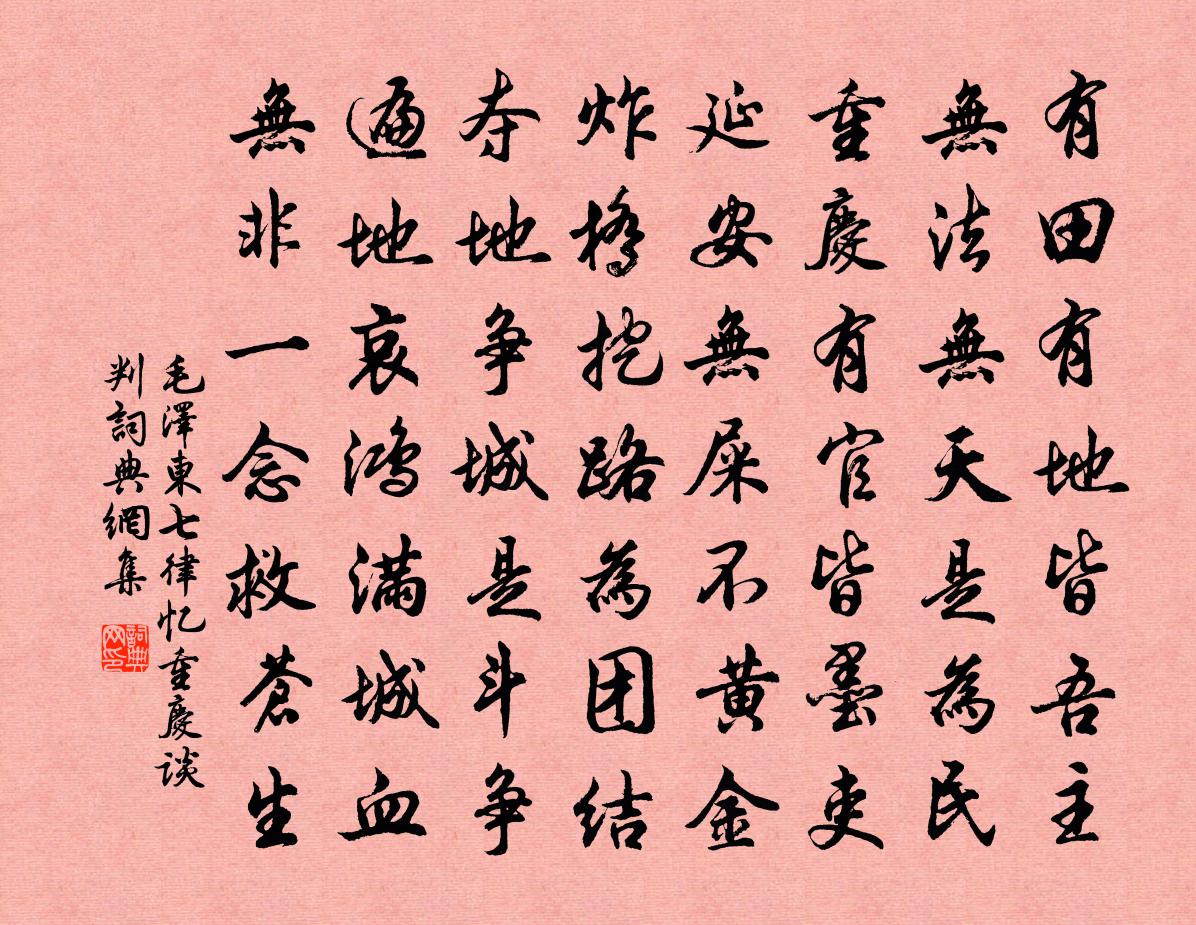 有田有地皆吾主
無法無天是為民
重慶有官皆墨吏
延安無屎不黄金
炸橋挖路為团结
夺地争城是斗争
遍地哀鸿满城血
無非一念救蒼生
毛澤東七律忆重慶谈
判詞典網集
詞典
网印